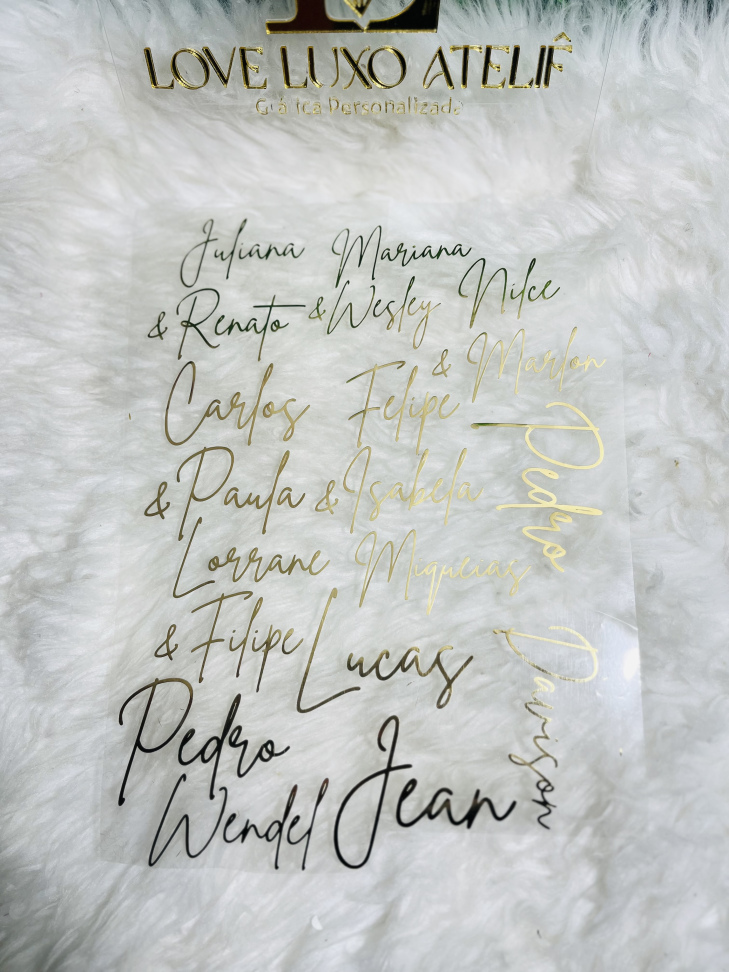 LOVE LUXO ATELIÊ
Gráfica Personalizada
Juliana Mariana
& Renato & Wesley Nilce
& Marlon
Carlos Felipe
& Paula & Isabela
Pedro
Lorrane Miqueias
& Filipe Lucas
Davison
Pedro
Jean
Wendel